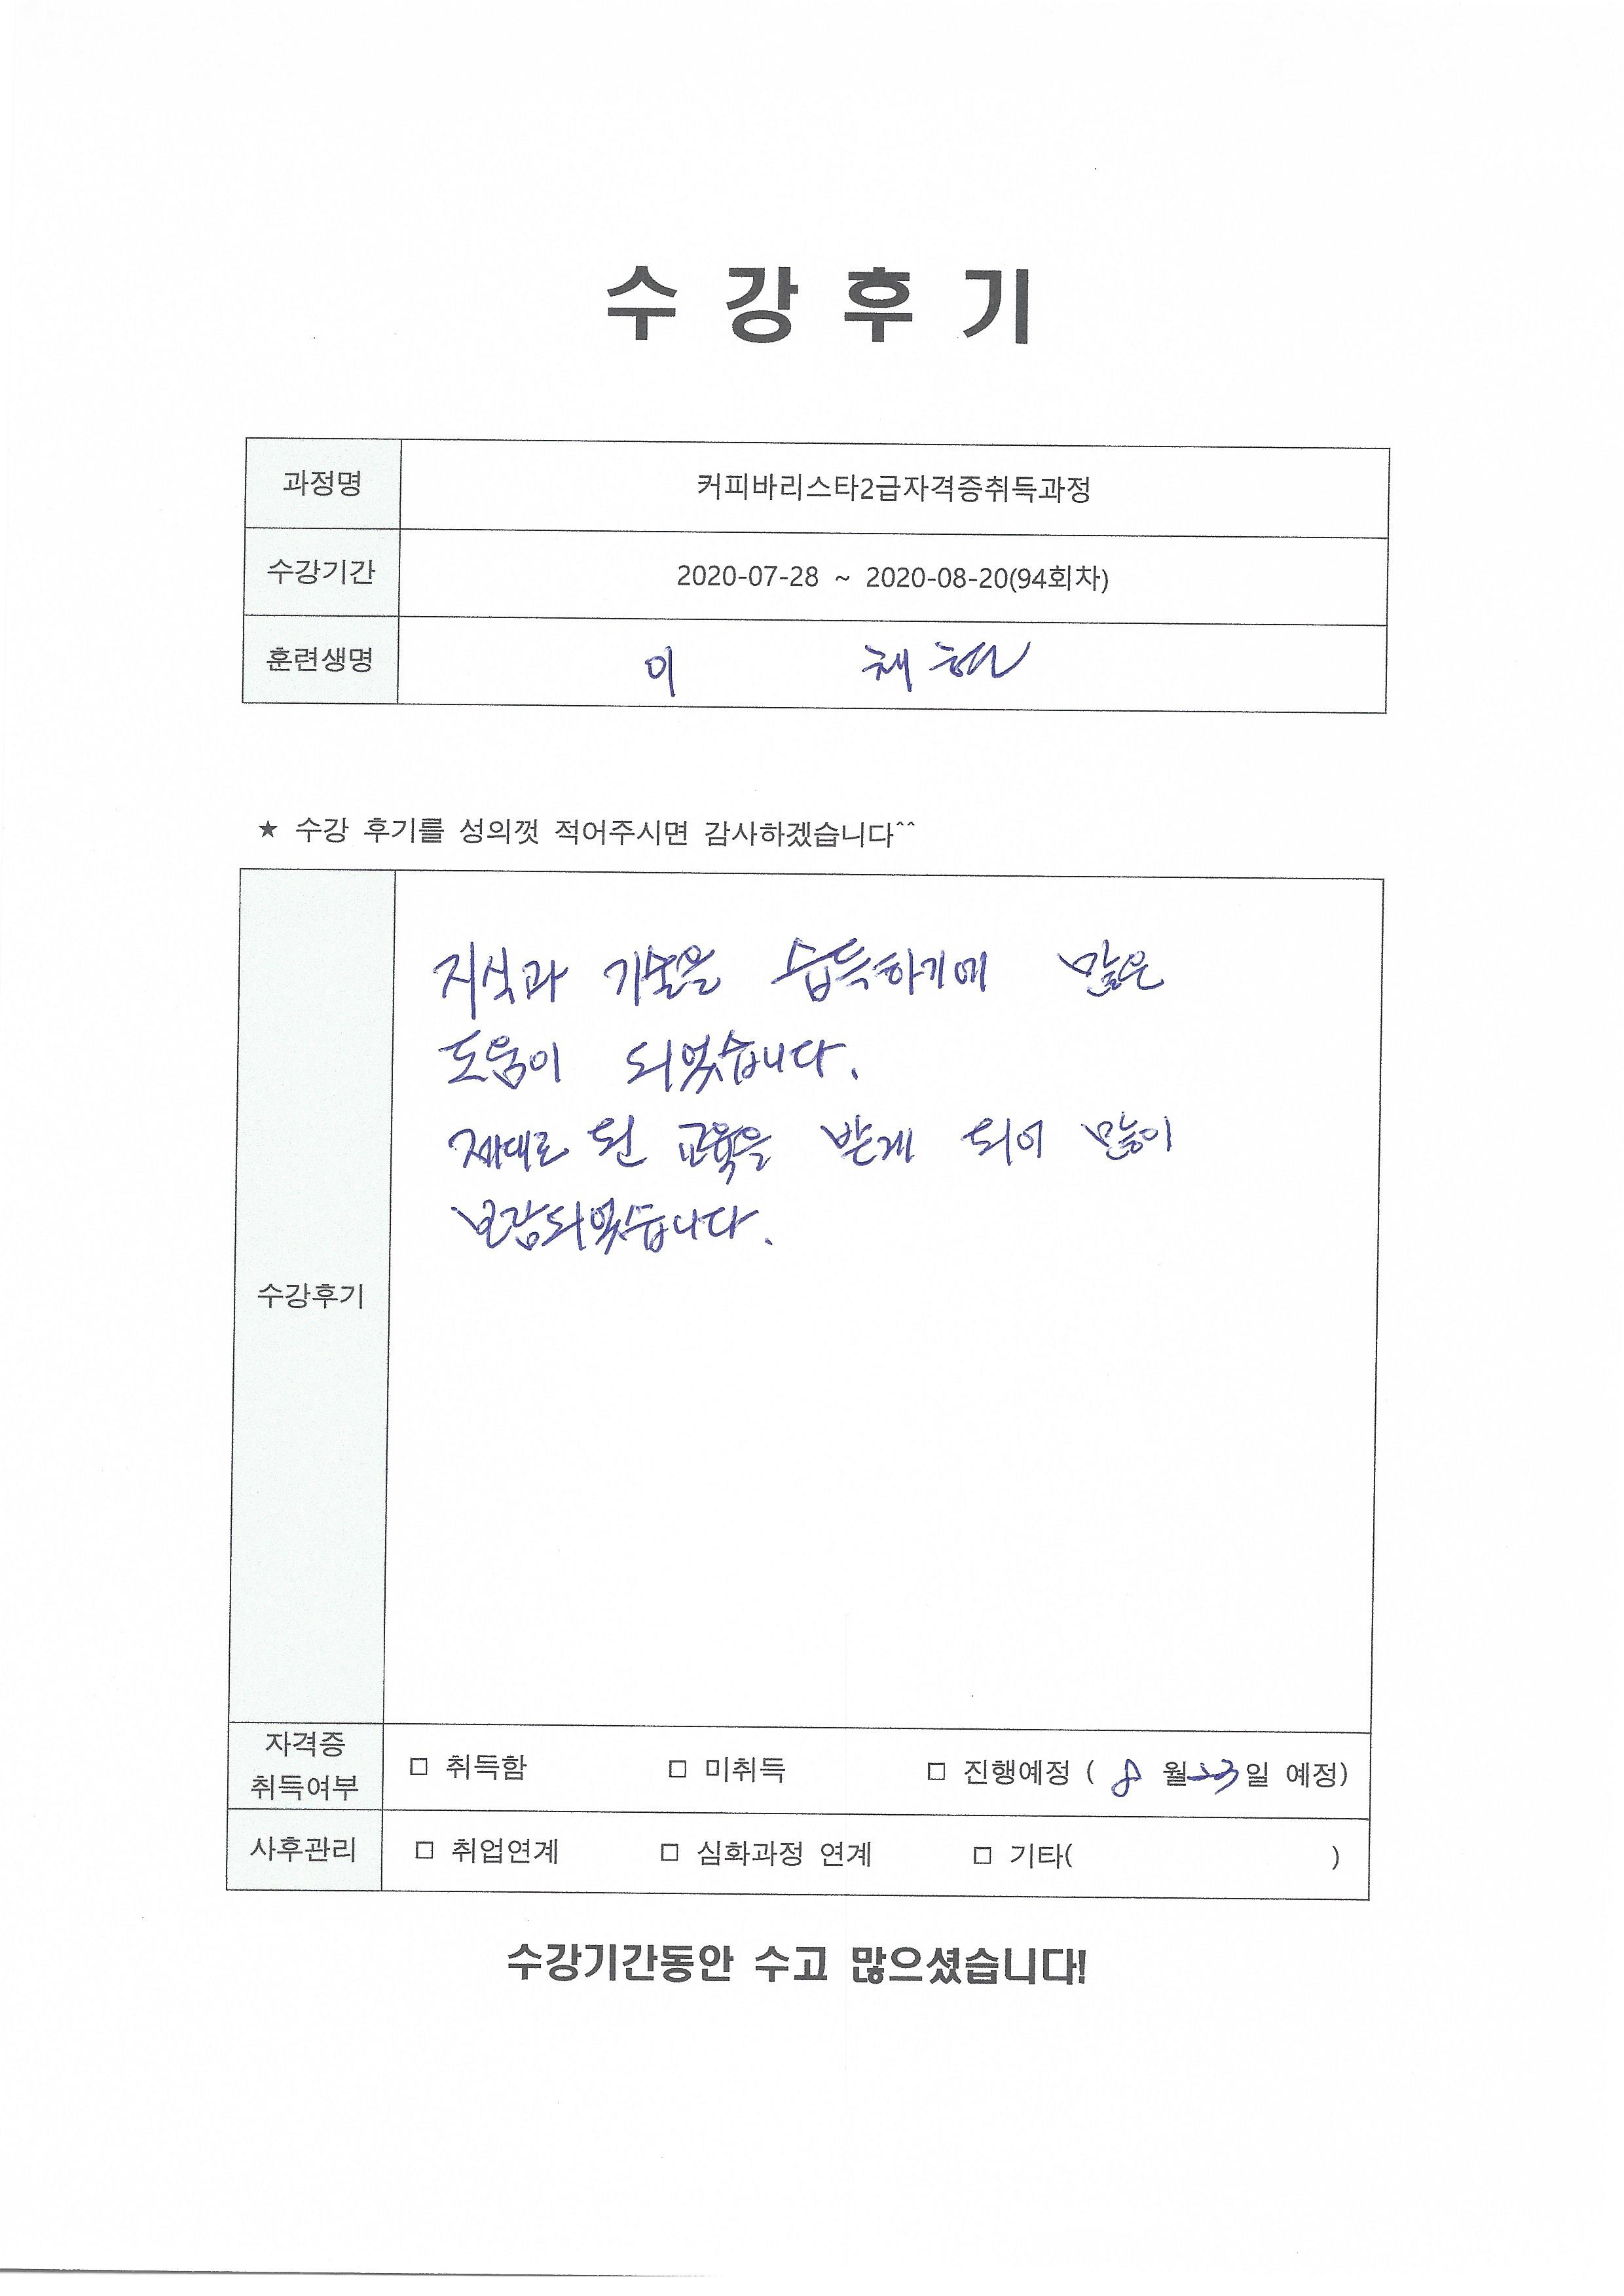 수 강 후 기
과정명 커피바리스타2급자격증취득과정
수강기간 2020-07-28 ~ 2020-08-20(94회차)
훈련생명 이 채현
★ 수강 후기를 성의껏 적어주시면 감사하겠습니다^^
지식과 기술을 습득하기에 많은
도움이 되었습니다.
제대로 된 교육을 받게 되어 많이
보람되었습니다.
수강후기
자격증
취득여부
□ 취득함 □ 미취득 □ 진행예정 ( 8 월 23 일 예정)
사후관리 □ 취업연계 □ 심화과정 연계 □ 기타( )
수강기간동안 수고 많으셨습니다!